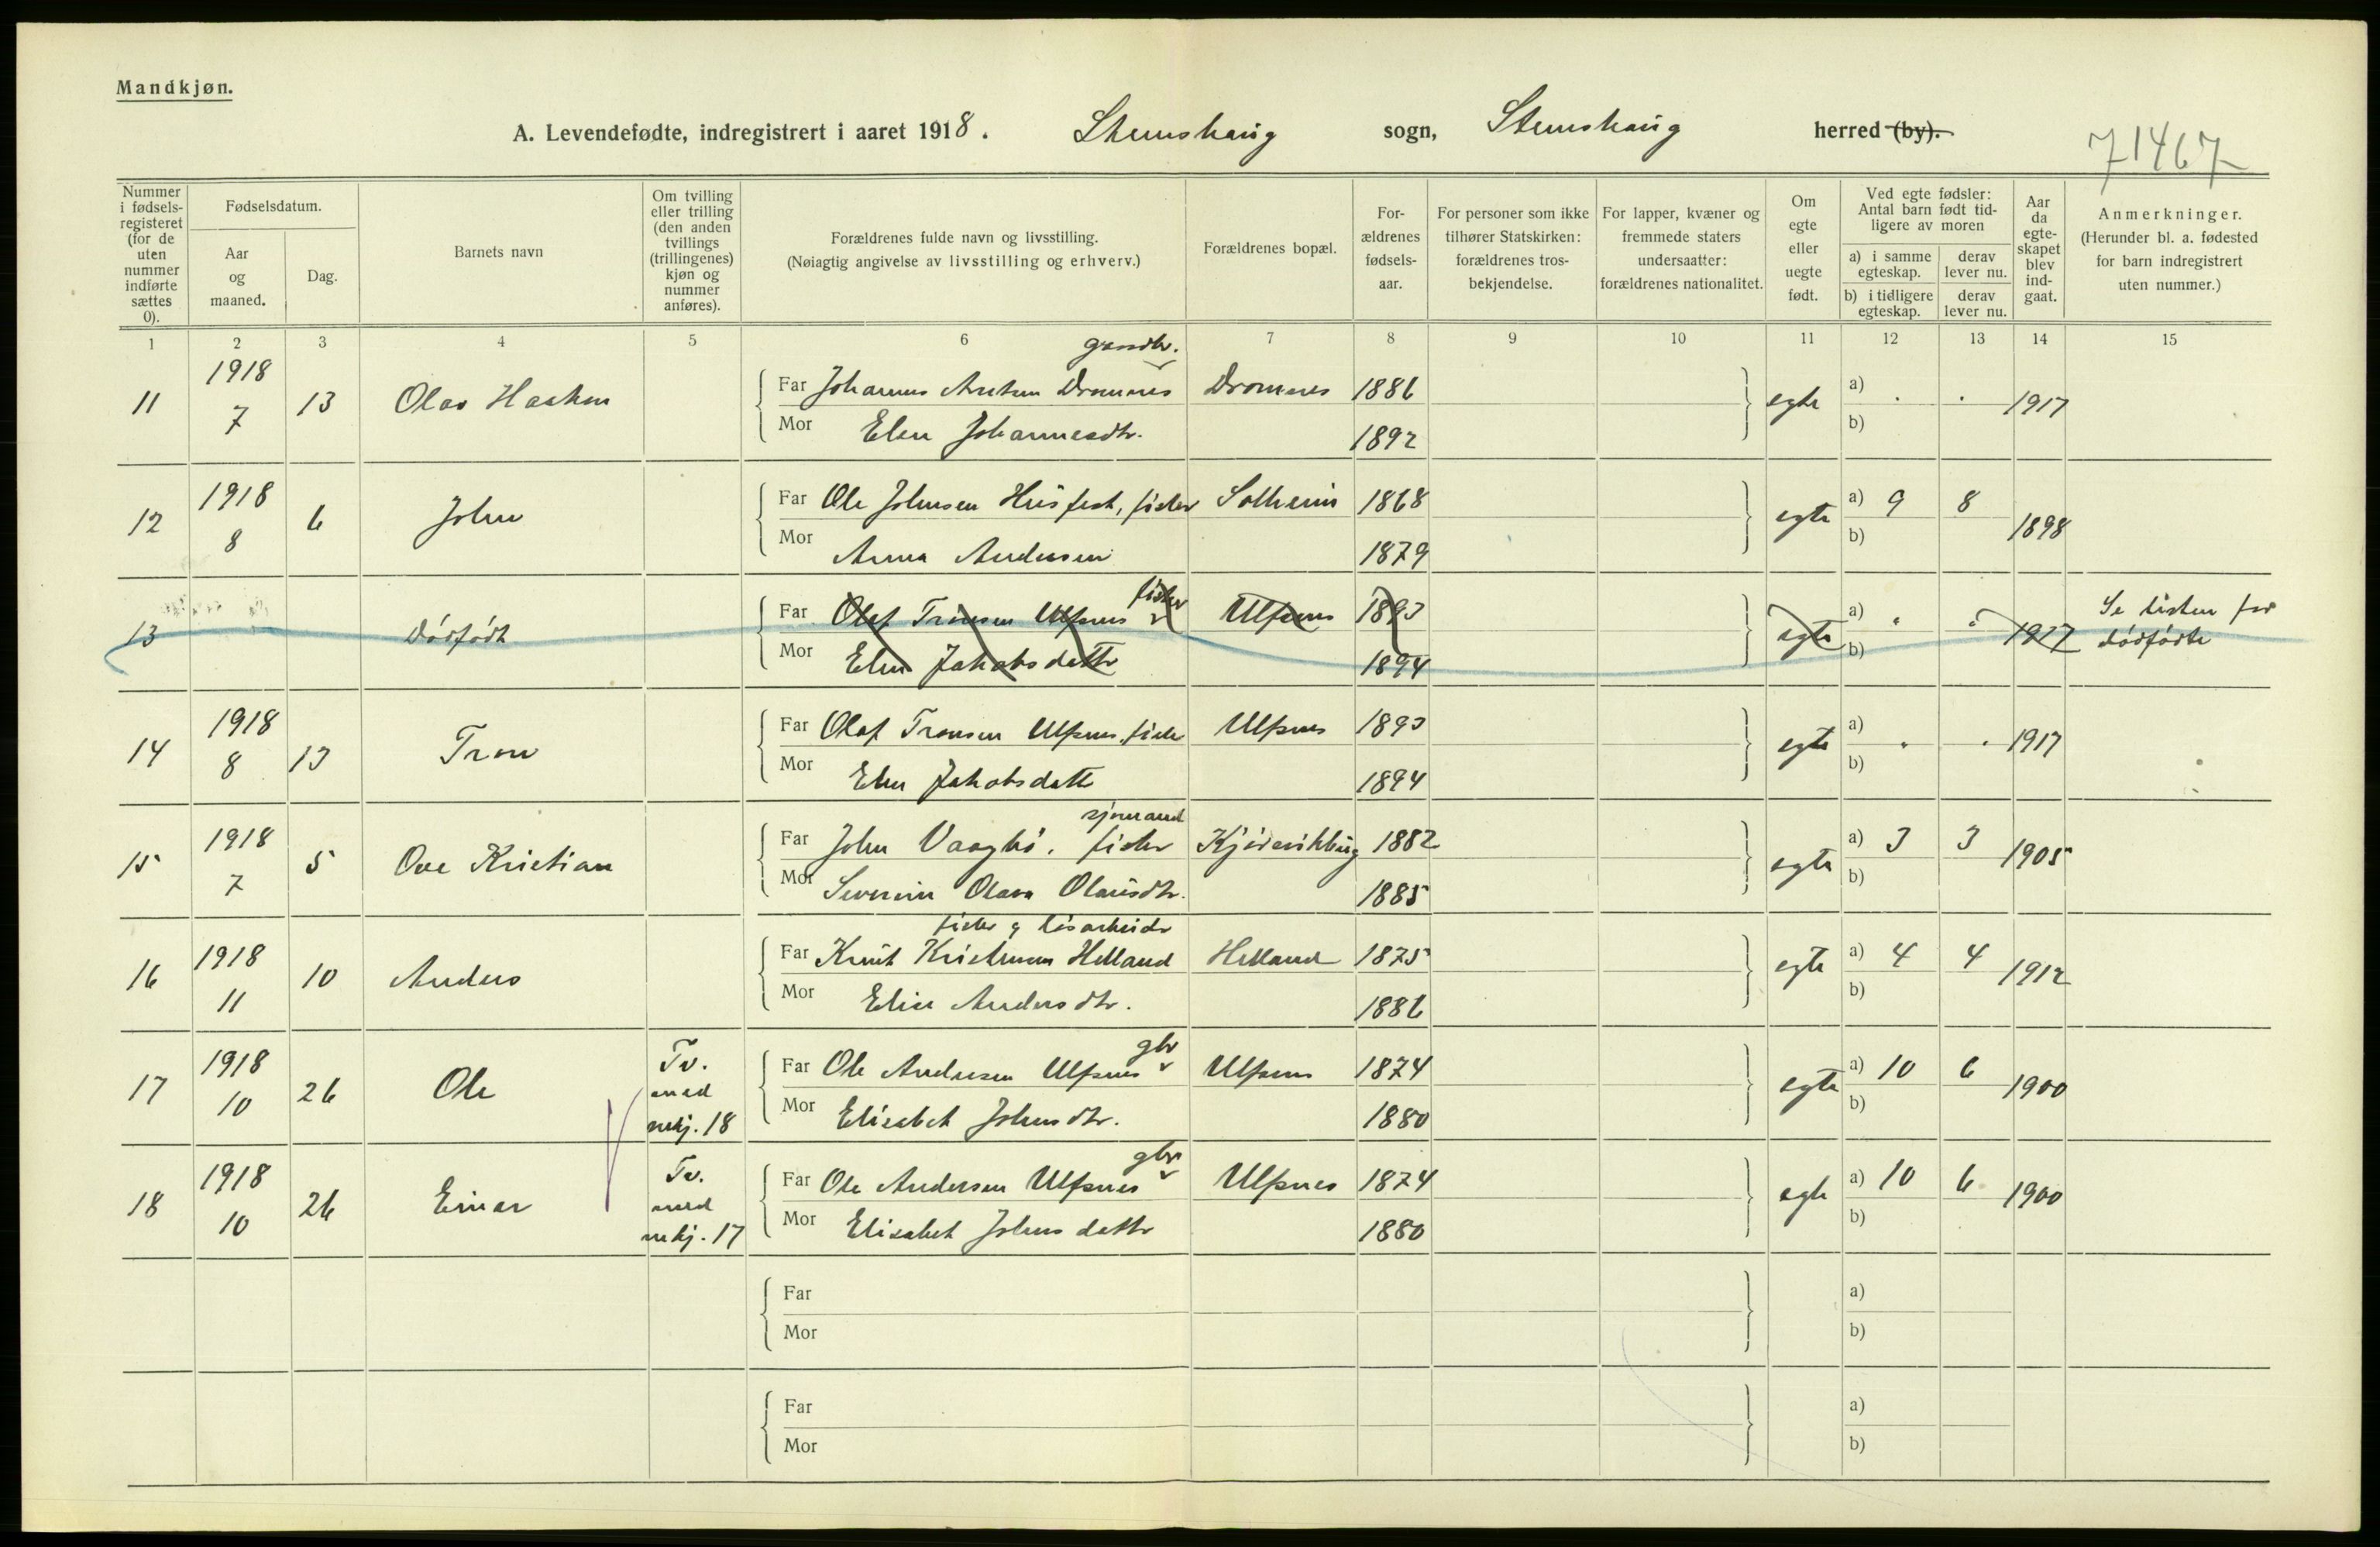 Mandkjøn.
A. Levendefødte, indregistrert i aaret 1918. Stemshaug sogn, Stemshaug herred (by).
71467
Nummer i fødselsregisteret (for de uten nummer indførte sættes 0).
Fødselsdatum.
Aar og maaned.
Dag.
Barnets navn
Om tvilling eller trilling (den anden tvillings (trillingenes) kjøn og nummer anføres).
Forældrenes fulde navn og livsstilling.
(Nøiagtig angivelse av livsstilling og erhverv.)
Forældrenes bopæl.
Forældrenes fødselsaar.
For personer som ikke tilhører Statskirken: forældrenes trosbekjendelse.
For lapper, kvæner og fremmede staters undersaatter: forældrenes nationalitet.
Om egte eller uegte født.
Ved egte fødsler: Antal barn født tidligere av moren
a) i samme egteskap.
derav lever nu.
b) i tidligere egteskap.
derav lever nu.
Aar da egteskapet blev indgaat.
Anmerkninger.
(Herunder bl. a. fødested for barn indregistrert uten nummer.)
1 2 3 4 5 6 7 8 9 10 11 12 13 14 15
gaardbr.
11 1918 7 13 Olav Haakon Far Johannes Dromnes Dromnes 1886 egte a) . . 1917
Mor Elen Johannesdtr. 1892 b)
12 1918 8 6 John Far Ole Johnsen Husfest, fisker Solheim 1868 egte a) 9 8 1898
Mor Anna Andersen 1879 b)
fisker
13 Dødfødt Far Olaf Tronsen Ulfsnes Ulfsnes 1893 egte a) . . 1917 Se listen for
Mor Elen Jakobsdattr 1894 b) dødfødte
14 1918 8 13 Tron Far Olaf Tronsen Ulfsnes, fisker Ulfsnes 1893 egte a) . . 1917
Mor Elen Jakobsdattr 1894 b)
sjømand
15 1918 7 5 Ove Kristian Far John Vaagbø, fisker 1882 egte a) 3 3 1905
Mor Severin Olava Olausdtr. 1885 b)
fisker og løsarbeider
16 1918 11 10 Anders Far Knut Helland Helland 1875 egte a) 4 4 1912
Mor Elise Andersdtr. 1886 b)
gbr
17 1918 10 26 Ole Tv. med mkj. 18 Far Ole Andersen Ulfsnes Ulfsnes 1874 egte a) 10 6 1900
Mor Elisabet Johnsdtr. 1880 b)
gbr
18 1918 10 26 Einar Tv. med mkj. 17 Far Ole Andersen Ulfsnes Ulfsnes 1874 egte a) 10 6 1900
Mor Elisabet Johnsdattr 1880 b)
Far a)
Mor b)
Far a)
Mor b)